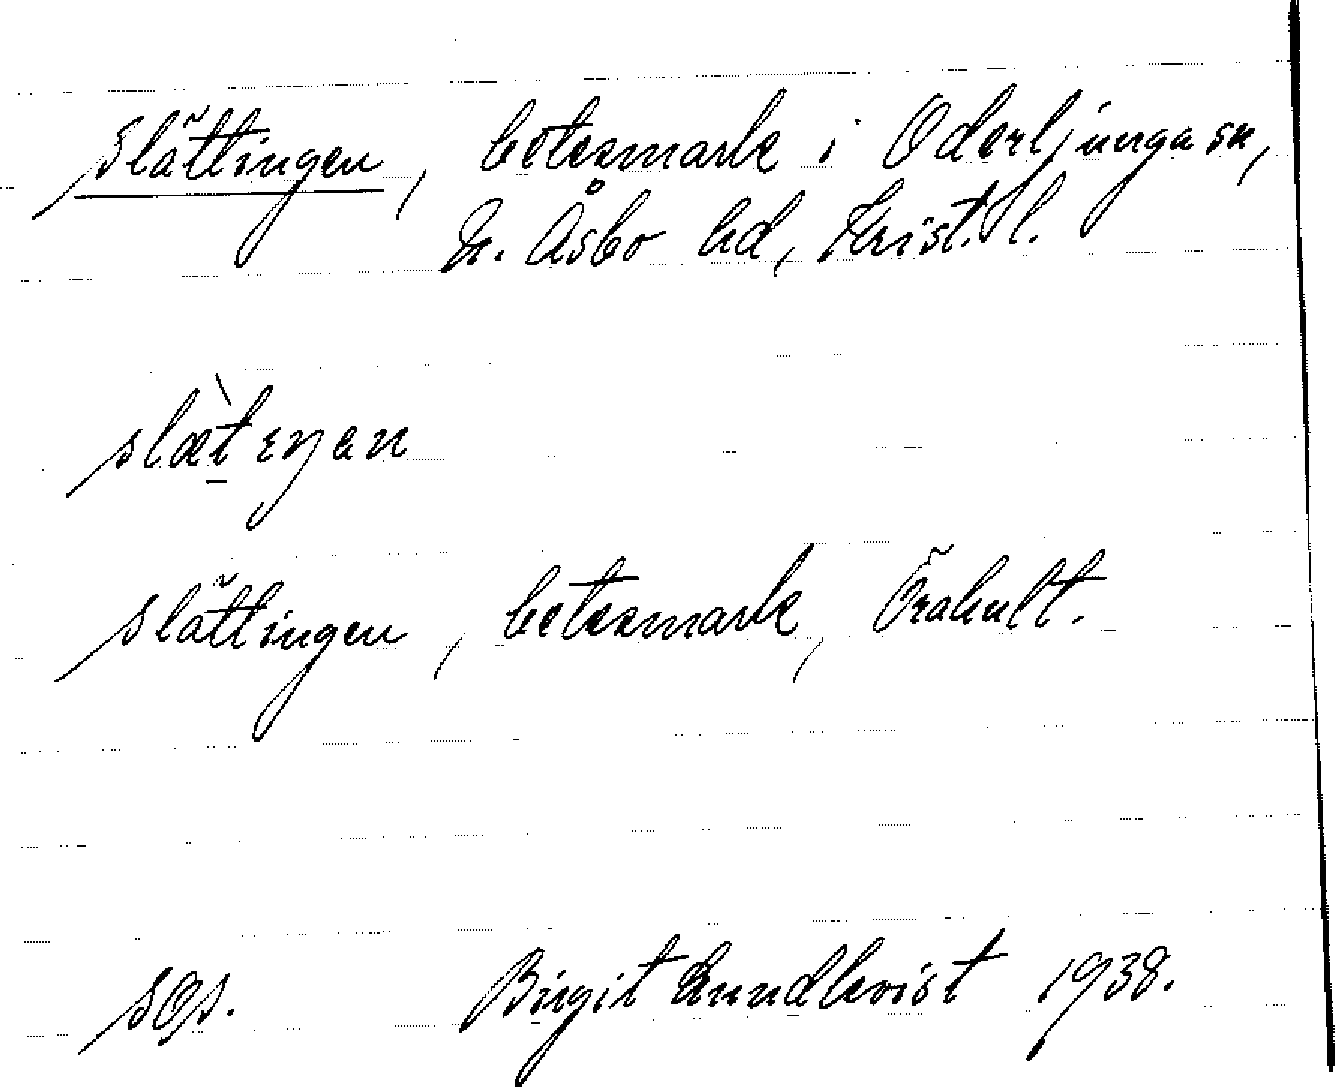 Slättingen, betesmark i Oderljunga sn,
N. Åsbo hd, Krist. l.
slæ̀t̲ eŋen
Slättingen, betesmark, Örahult.
SOS. Birgit Lundkvist 1938.